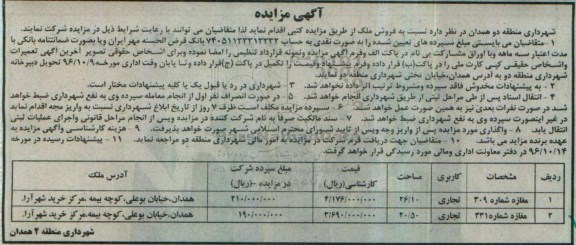 آگهی مزایده
شهرداری منطقه دو همدان در نظر دارد نسبت به فروش ملک از طریق مزایده کتبی اقدام نماید لذا متقاضیان می توانند با رعایت شرایط ذیل در مزایده شرکت نمایند.
۱ - متقاضیان می بایستی مبلغ سپرده های تعیین شده را به صورت نقدی به حساب بانک قرض الحسنه مهر ایران ویا بصورت ضمانتنامه بانکی با
مدت اعتبار سه ماهه ویا اوراق مشارکت بی نام در پاکت الف وفرم آگهی مزایده ونمونه قرارداد تنظیمی را امضا نموده وبرای اشخاص حقوقی تصویر آخرین آگهی تغییرات
واشخاص حقیقی کپی کارت ملی را در پاکت(ب) قرار داده وفرم پیشنهاد وقیمت را تکمیل در پاکت (ج)قرار داده وتا پایان وقت اداری مورخه ۹۶/۱۰/۹ تحویل دبیرخانه
شهرداری منطقه دو به آدرس همدان،خیابان تختی شهرداری منطقه دو نمایند.
۲ - به پیشنهادات مخدوش فاقد سپرده ومشروط ترتیب اثر داده نخواهد شد. ۳ - شهرداری در رد یا قبول یک یا کلیه پیشنهادات مختار است.
۴ - انتقال اسناد پس از طی مراحل ثبتی از طریق شهرداری انجام خواهد شد. ۵ - در صورت انصراف نفر اول از انجام معامله سپرده وی به نفع شهرداری ضبط خواهد
شد در صورت نفرات بعدی نیز به همین صورت عمل خواهد شد. ۶ - سپرده مزایده مکلف است ظرف ۷ روز از تاریخ ابلاغ شهرداری نسبت به واریز وجه اقدام نماید
در غیر اینصورت سپرده وی به نفع شهرداری ضبط خواهد شد. ۷ - سند مالکیت صرفاً به نام شرکت کننده در مزایده وپس از انجام مراحل قانونی واجرای عملیات ثبتی
انتقال یابد. ۸ - واگذاری مورد مزایده پس از واریز وجه وپس از تایید شورای محترم اسلامی شهر صورت خواهد پذیرفت. ۹ - هزینه کارشناسی وآگهی مزایده به
عهده برنده مزایده می باشد. ۱۰ - متقاضیان جهت دریافت فرم شرکت در مزایده به امور مالی شهرداری منطقه دو مراجعه نمایند. ۱۱ - پیشنهادات رسیده در مورخه
۹۶/۱۰/۱۴ در دفتر معاونت اداری ومالی مورد رسیدگی قرار خواهد گرفت.
ردیف مشخصات کاربری مساحت قیمت کارشناسی(ریال) مبلغ سپرده شرکت در مزایده -(ریال) آدرس ملک
۱ مغازه شماره ۳۰۹ تجاری ۲۶/۱۰ ۴/۱۷۶/۰۰۰/۰۰۰ ۲۱۰/۰۰۰/۰۰۰ همدان،خیابان بوعلی،کوچه بیمه،مرکز خرید شهر آرا.
۲ مغازه شماره ۳۳۱ تجاری ۲۰/۵۰ ۳/۶۹۰/۰۰۰/۰۰۰ ۱۹۰/۰۰۰/۰۰۰ همدان،خیابان بوعلی،کوچه بیمه،مرکز خرید شهر آرا.
شهرداری منطقه ۲ همدان